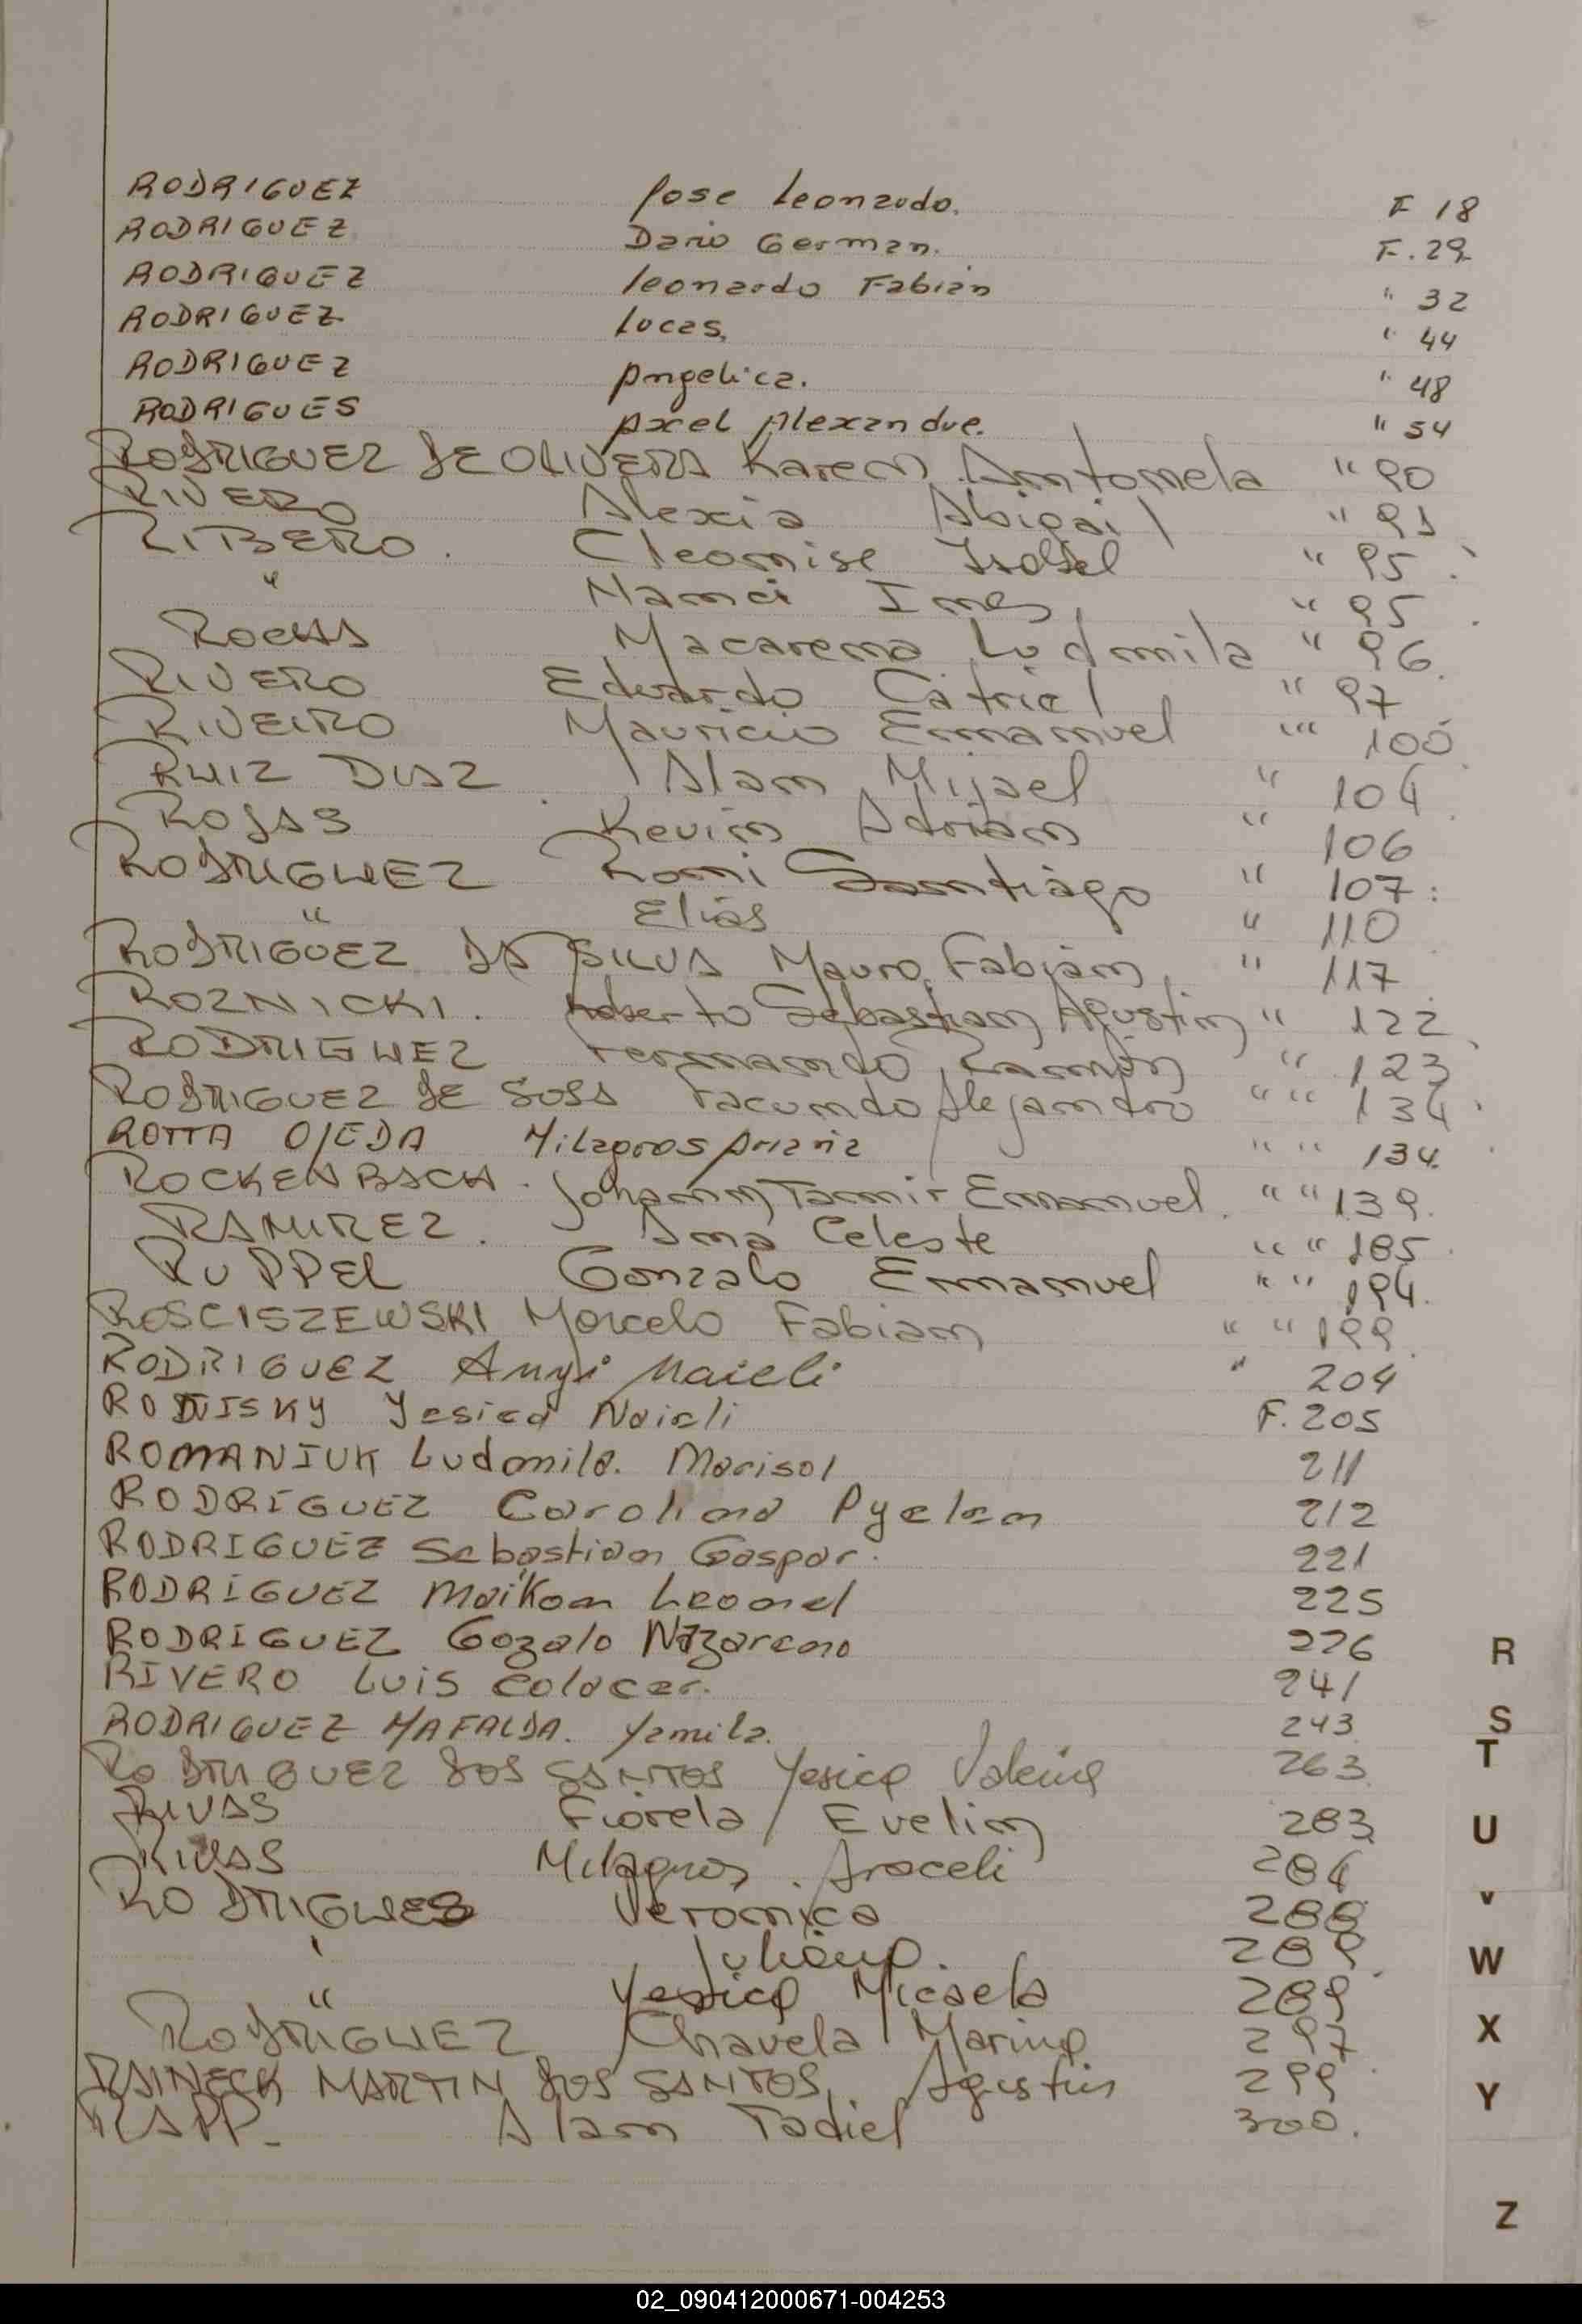 RODRIGUEZ Jose Leonardo. F 18
RODRIGUEZ Dario German. F. 29
RODRIGUEZ Leonardo Fabián " 32
RODRIGUEZ Lucas. " 44
RODRIGUEZ Angelica. " 48
RODRIGUES Axel Alexandre. " 54
RODRIGUEZ DE OLIVERA Karen Antonela " 90
RIVERO Alexia Abigail " 91
RIBEIRO. Cleonise Isabel " 95
" Nanci Ines " 95
ROCHA Macarena Ludmila " 96
RIVERO Eduardo Catriel " 97
RIVEIRO Mauricio Emmanuel " 100
RUIZ DIAZ Alam Mijael " 104
ROJAS Kevin Adrian " 106
RODRIGUEZ Romi Santiago " 107
" Elias " 110
RODRIGUEZ DA SILVA Mauro Fabian " 117
ROZNICKI. Roberto Sebastian Agustin " 122
RODRIGUEZ Fernando Ramón " 123
RODRIGUEZ DE SOSA Facundo Alejandro " " 134
ROTTA OJEDA Milagros Ariana " " 134.
ROCKENBACH. Johann Tamir Emanuel. " " 139.
RAMIREZ. Ana Celeste " " 185
RUPPEL Gonzalo Emmanuel " " 194.
ROSCISZEWSKI Marcelo Fabian " " 199
RODRIGUEZ Anyi Maieli " 204
Yesica Naieli F. 205
ROMANIUK Ludmila. Marisol 211
RODRIGUEZ Carolina 212
RODRIGUEZ Sebastian Gaspar. 221
RODRIGUEZ Maikon Leonel 225
RODRIGUEZ Gozalo Nazareno 226
RIVERO Luis 241
RODRIGUEZ MAFALDA. Yamila. 243
RODRIGUEZ DOS SANTOS Yesica Valeria 263
RIVAS Fiorela Evelin 283
RIVAS Milagros. Araceli 284
RODRIGUES Veronica 288
" Juliana. 289
" Yesica Micaela 289
RODRIGUEZ Chavela Marina 297
RAINECK MARTIN DOS SANTOS Agustin 299
RAPP. Alam Tadiel 300.
R
S
T
U
V
W
X
Y
Z
02_090412000671-004253